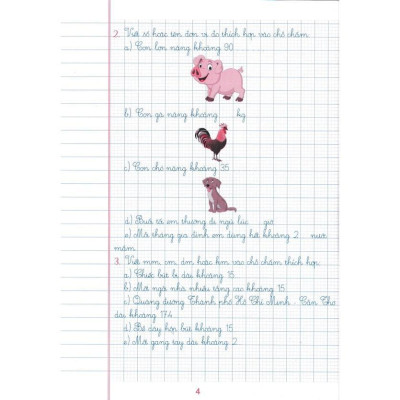 2. Viết số hoặc tên đơn vị đo thích hợp vào chỗ chấm.
a) Con lợn nặng khoảng 90
b) Con gà nặng khoảng kg
c) Con chó nặng khoảng 35
d) Buổi tối em thường đi ngủ lúc giờ
e) Mỗi tháng gia đình em dùng hết khoảng 2 nước
mắm.
3. Viết mm, cm, dm hoặc km vào chỗ chấm thích hợp.
a) Chiếc bút bi dài khoảng 15
b) Một ngôi nhà nhiều tầng cao khoảng 15
c) Quãng đường Thành phố Hồ Chí Minh - Cần Thơ
dài khoảng 174
d) Bề dày hộp bút khoảng 15
e) Một gang tay dài khoảng 2
4